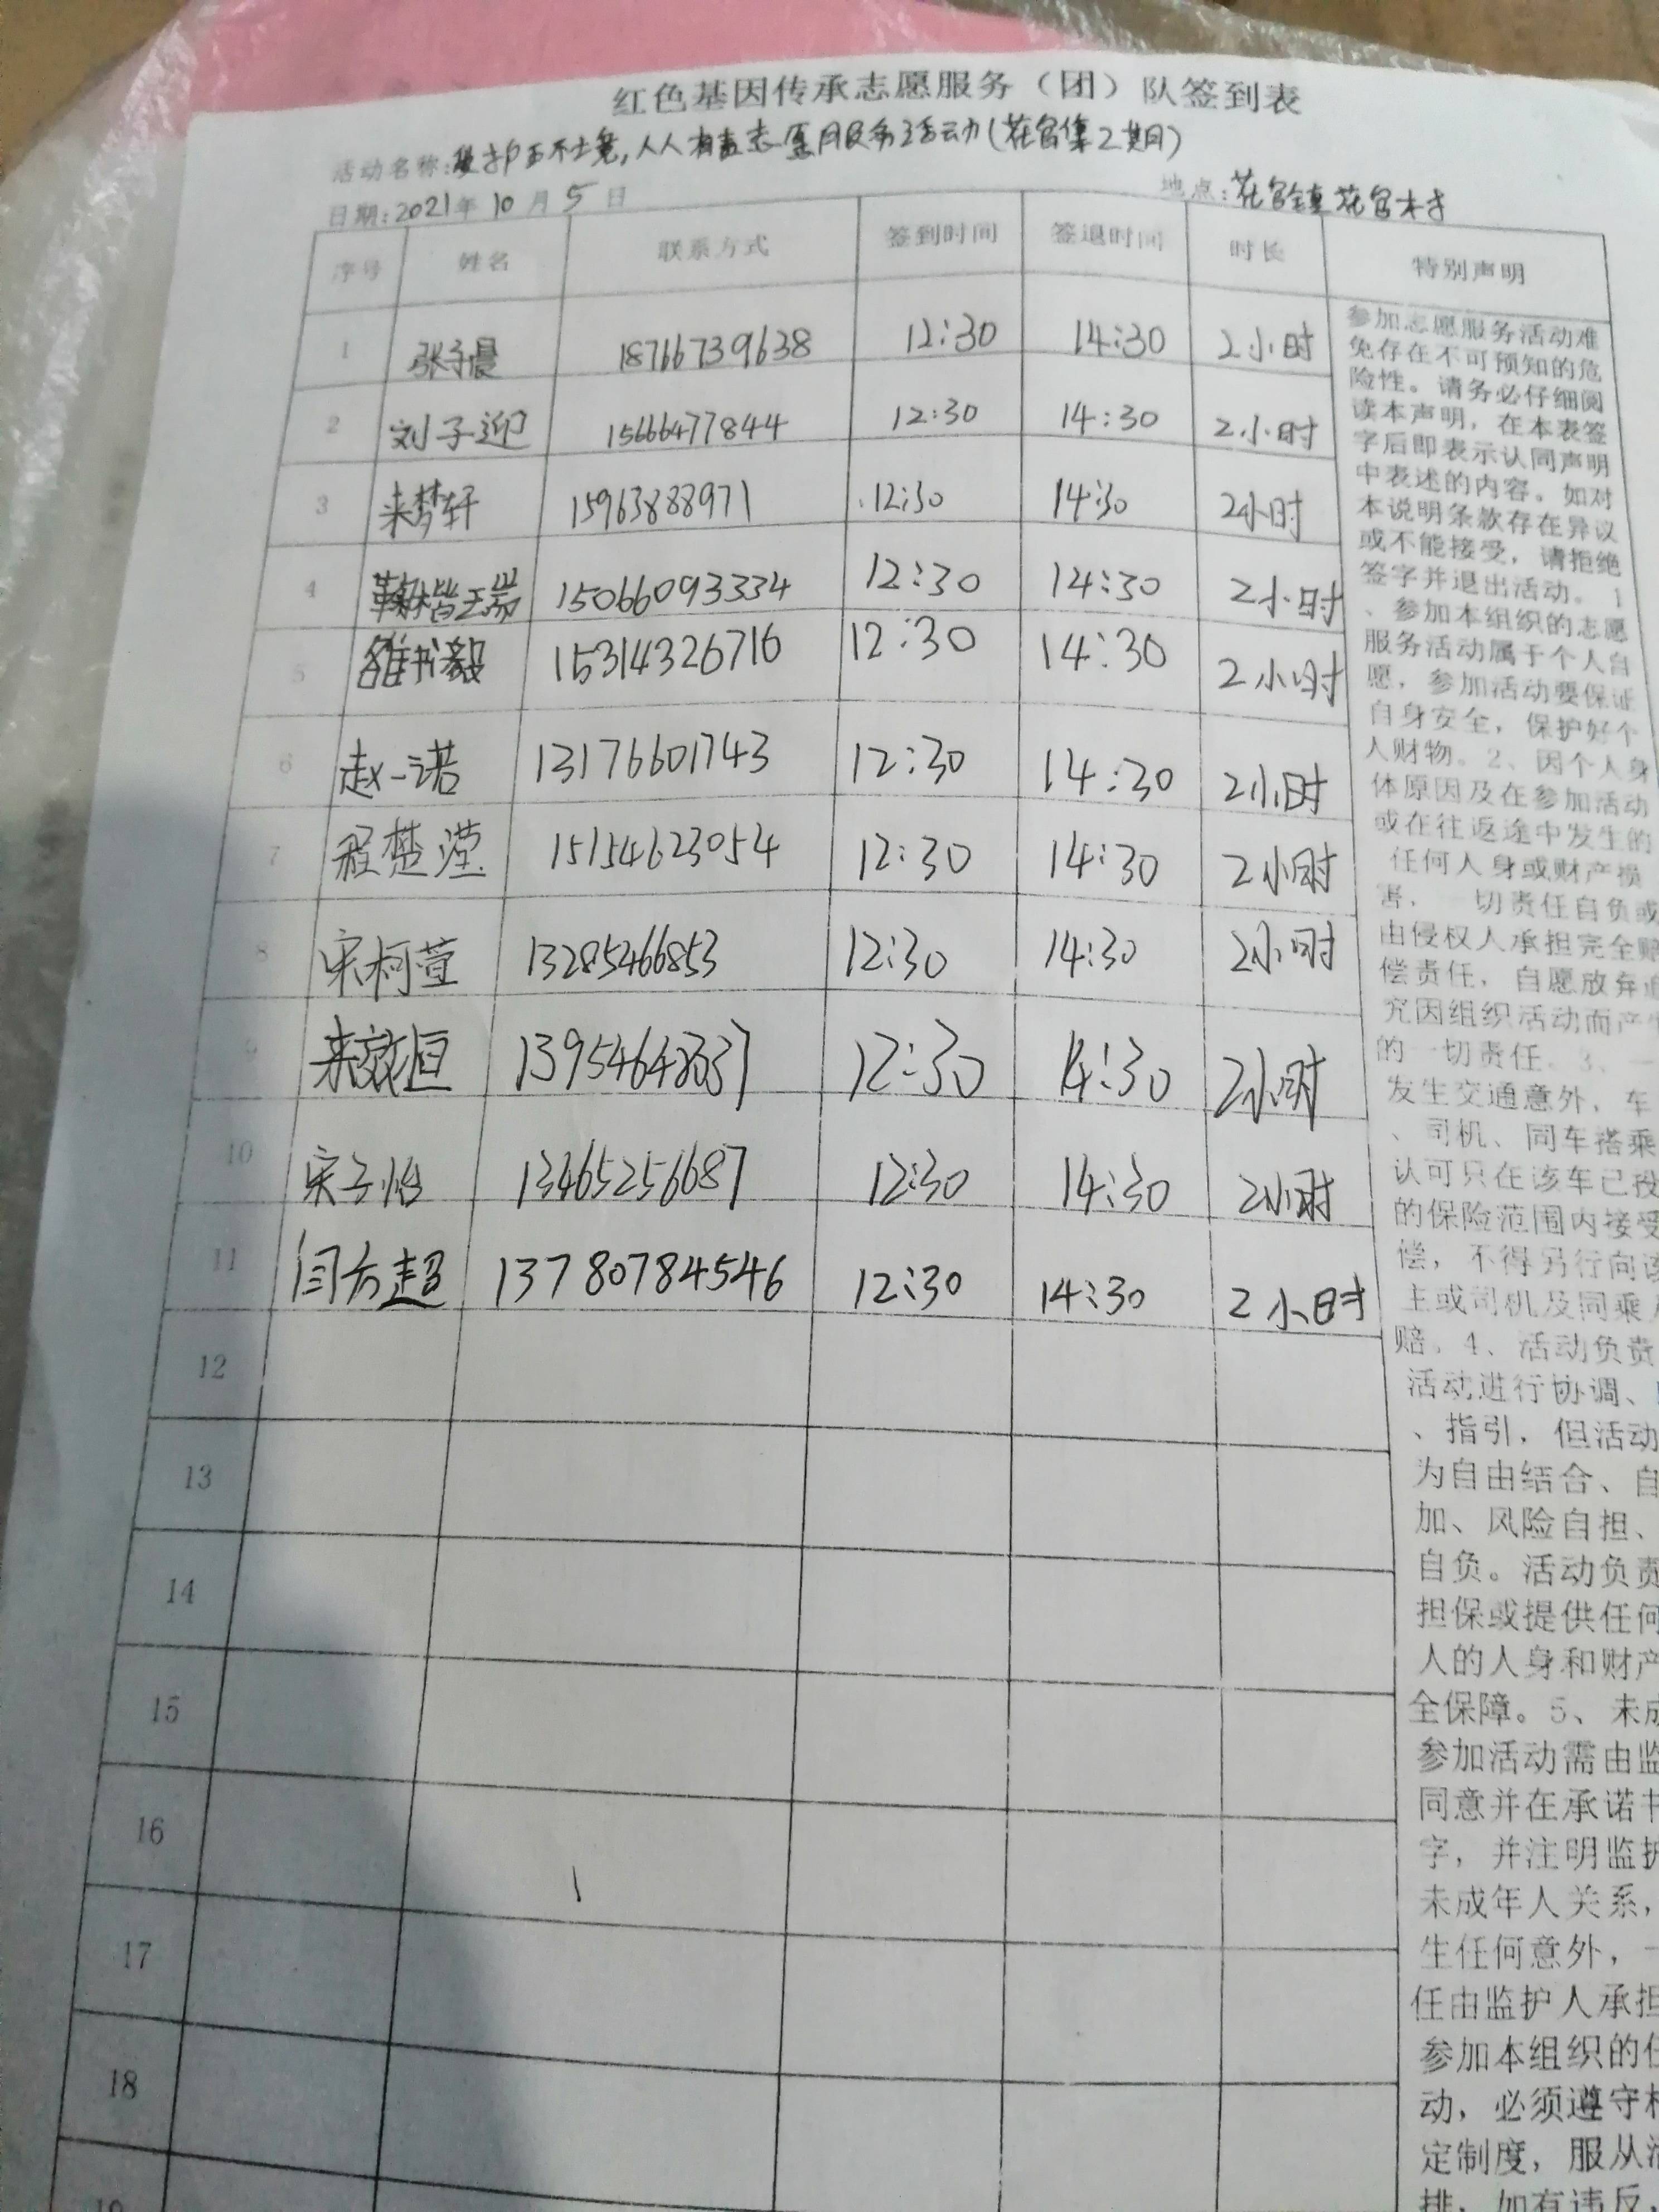 红色基因传承志愿服务（团）队签到表
活动名称:爱护环境,人人有责志愿服务活动(花官集2期)
日期:2021年10月5日 地点:花官镇花官村
序号 姓名 联系方式 签到时间 签退时间 时长 特别声明
1 张子晨 18766739638 12:30 14:30 2小时
2 刘子迎 15666477844 12:30 14:30 2小时
3 来梦轩 15963888971 12:30 14:30 2小时
4 鞠楷瑞 15066093334 12:30 14:30 2小时
5 雒书毅 15314326716 12:30 14:30 2小时
6 赵一诺 13176601743 12:30 14:30 2小时
7 程楚滢 15154623054 12:30 14:30 2小时
8 宋柯萱 13285466853 12:30 14:30 2小时
9 来效恒 12:30 14:30 2小时
10 宋子怡 13465256687 12:30 14:30 2小时
11 闫方超 13780784546 12:30 14:30 2小时
12
13
14
15
16
17
18
19
参加志愿服务活动难
免存在不可预知的危
险性。请务必仔细阅
读本声明，在本表签
字后即表示认同声明
中表述的内容。如对
本说明条款存在异议
或不能接受，请拒绝
签字并退出活动。1
、参加本组织的志愿
服务活动属于个人自
愿，参加活动要保证
自身安全，保护好个
人财物。2、因个人身
体原因及在参加活动
或在往返途中发生的
任何人身或财产损
害，一切责任自负或
由侵权人承担完全赔
偿责任，自愿放弃追
究因组织活动而产生
的一切责任。3、一
发生交通意外，车
、司机、同车搭乘
认可只在该车已投
的保险范围内接受
偿，不得另行向该
主或司机及同乘人
赔。4、活动负责
活动进行协调、
、指引，但活动
为自由结合、自
加、风险自担、
自负。活动负责
担保或提供任何
人的人身和财产
全保障。5、未成
参加活动需由监
同意并在承诺书
字，并注明监护
未成年人关系，
生任何意外，一
任由监护人承担
参加本组织的任
动，必须遵守相
定制度，服从活
排，如有违反，